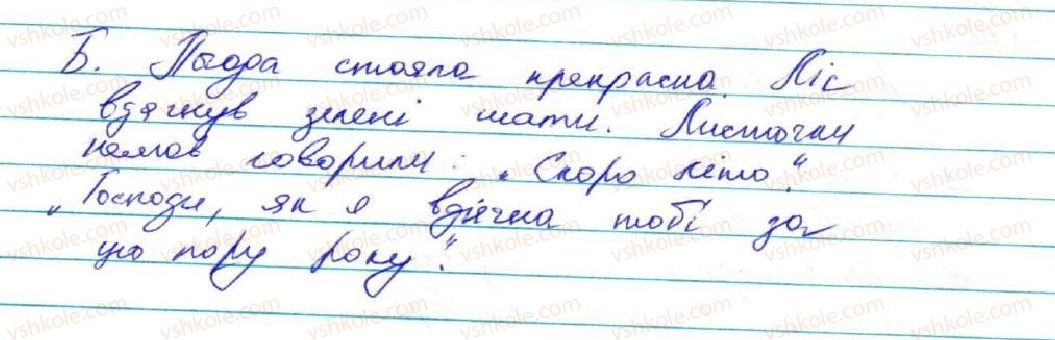 Б. Погода стояла прекрасна. Ліс
вдягнув зелені шати. Листочки
немов говорили: „Скоро літо."
„Господи, як я вдячна тобі за
цю пору року".